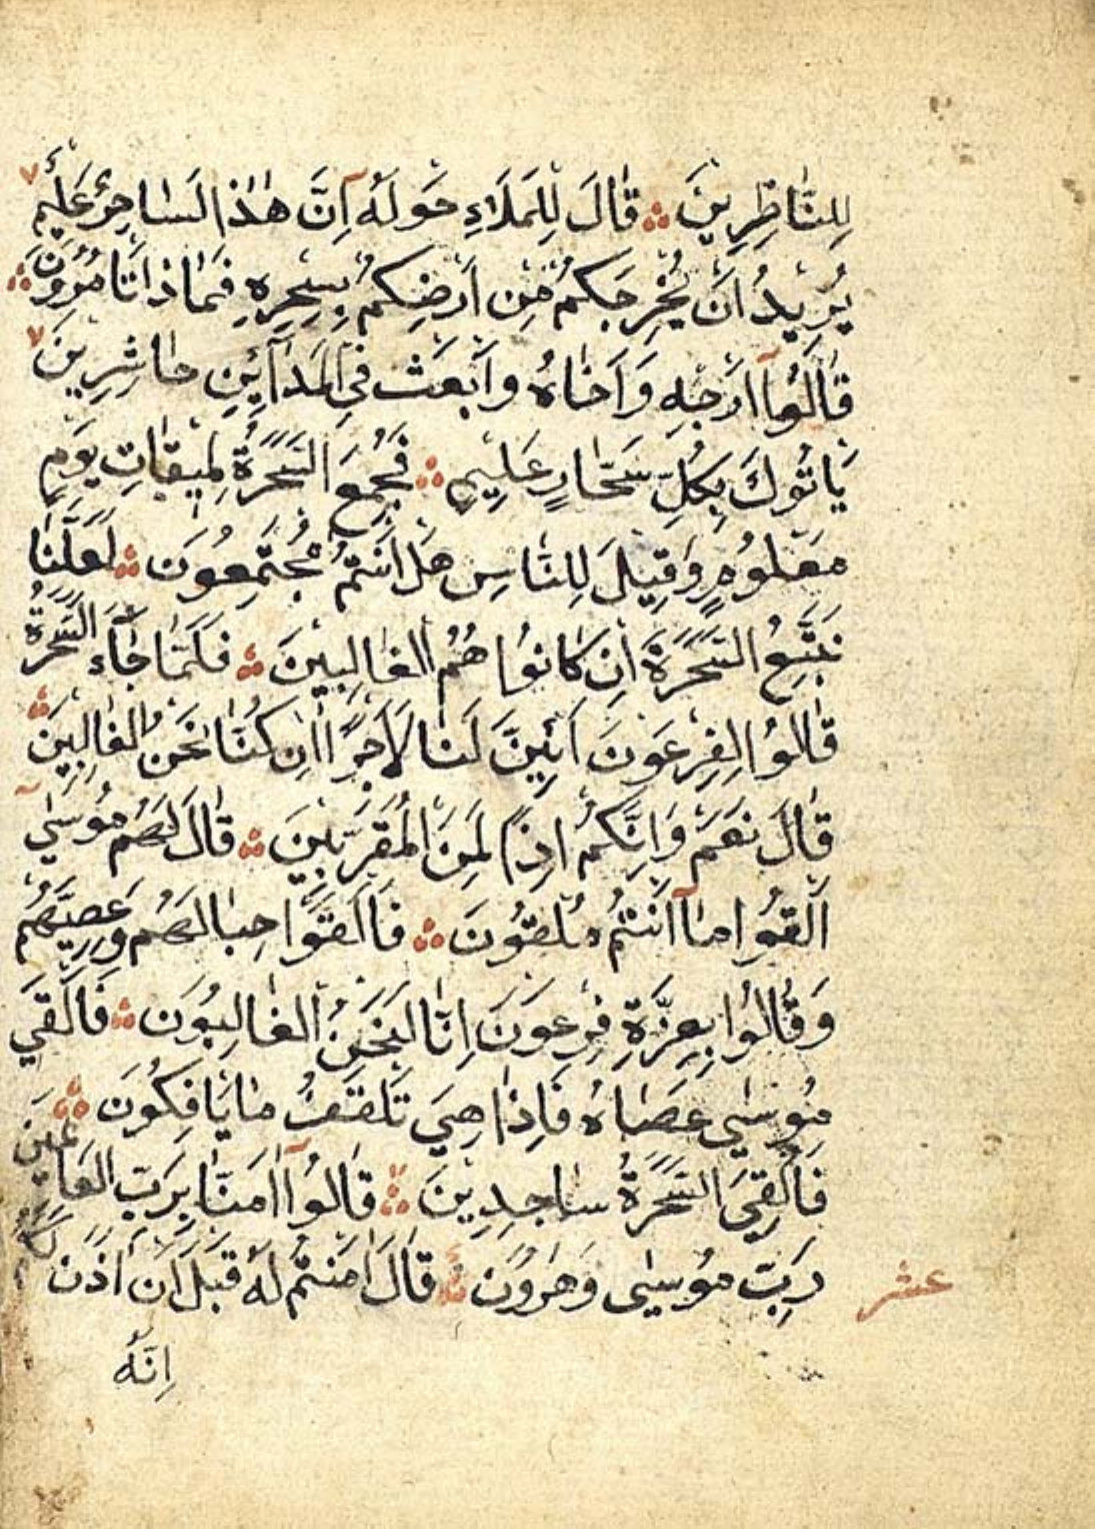 لِلنَّاظِرِينَ ۞ قَالَ لِلْمَلَاءِ حَوْلَهُٓ اِنَّ هٰذَا لَسَاحِرٌ عَلِيمٌ
يُرِيدُ اَنْ يُخْرِجَكُمْ مِنْ اَرْضِكُمْ بِسِحْرِهِ فَمَاذَا تَأْمُرُونَ
قَالُوٓا اَرْجِهِ وَاَخَاهُ وَابْعَثْ فِي الْمَدَآئِنِ حَاشِرِينَ
يَأْتُوكَ بِكُلِّ سَحَّارٍ عَلِيمٍ ۞ فَجُمِعَ السَّحَرَةُ لِمِيقَاتِ يَوْمٍ
مَعْلُومٍ وَقِيلَ لِلنَّاسِ هَلْ اَنْتُمْ مُجْتَمِعُونَ ۞ لَعَلَّنَا
نَتَّبِعُ السَّحَرَةَ اِنْ كَانُوا هُمُ الْغَالِبِينَ ۞ فَلَمَّا جَآءَ السَّحَرَةُ
قَالُوا لِفِرْعَوْنَ اَئِنَّ لَنَا لَاَجْرًا اِنْ كُنَّا نَحْنُ الْغَالِبِينَ ۞
قَالَ نَعَمْ وَاِنَّكُمْ اِذًا لَمِنَ الْمُقَرَّبِينَ ۞ قَالَ لَهُمْ مُوسٰٓى
اَلْقُوا مَآ اَنْتُمْ مُلْقُونَ ۞ فَاَلْقَوْا حِبَالَهُمْ وَعِصِيَّهُمْ
وَقَالُوا بِعِزَّةِ فِرْعَوْنَ اِنَّا لَنَحْنُ الْغَالِبُونَ ۞ فَاَلْقٰى
مُوسٰى عَصَاهُ فَاِذَا هِيَ تَلْقَفُ مَا يَأْفِكُونَ ۞
فَاُلْقِيَ السَّحَرَةُ سَاجِدِينَ ۞ قَالُوٓا اٰمَنَّا بِرَبِّ الْعَالَمِينَ
رَبِّ مُوسٰى وَهٰرُونَ ۞ قَالَ اٰمَنْتُمْ لَهُ قَبْلَ اَنْ اٰذَنَ لَكُمْ
عشر
اِنَّهُ